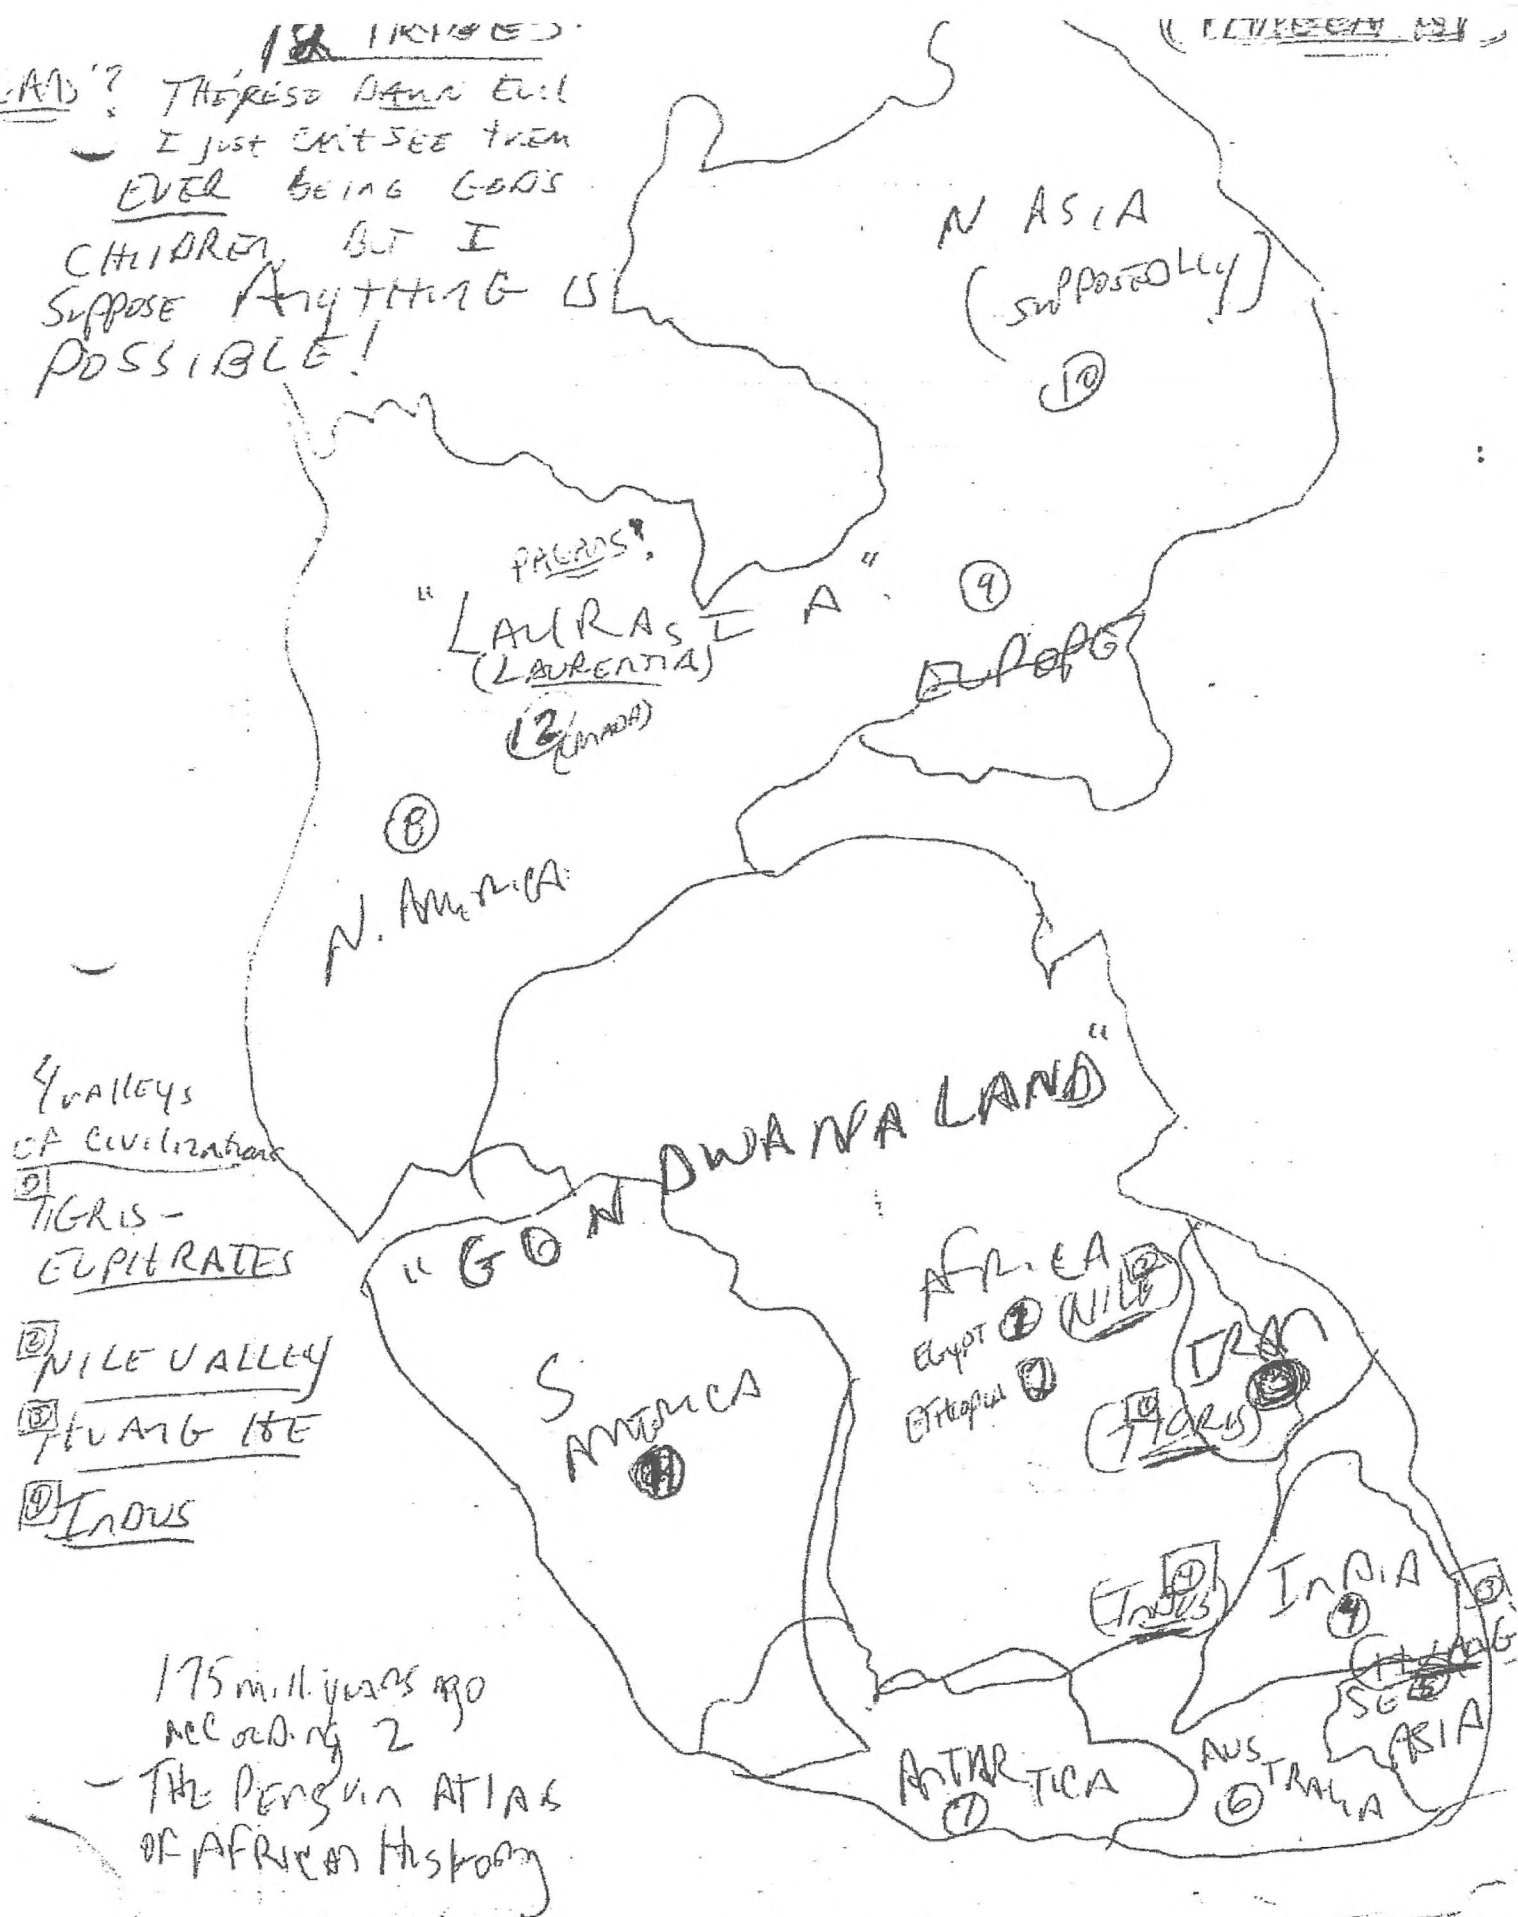 12 TRIBES.
THE REST DAMN EVIL
I just CAN'T SEE them
EVER BEING GOD'S
CHILDREN, BUT I
SUPPOSE ANYTHING IS
POSSIBLE!
N ASIA
(SUPPOSEDLY)
10
PAGANS".
"LAURASIA".
(LAURENTIA)
12 (CANADA)
9
EUROPE
8
N. AMERICA
"GONDWANALAND"
4 VALLEYS
OF CIVILIZATION
1 TIGRIS -
EUPHRATES
2 NILE VALLEY
3 HUANG HE
4 INDUS
AFRICA 2
EGYPT 1 (NILE)
ETHIOPIA 2
IRAN
3
1
(TIGRIS)
S
AMERICA
11
4
(INDUS)
INDIA
4
3
(HUANG
SE 5
ASIA
AUS
TRALIA
6
ANTARTICA
7
175 mill. years ago
ACCORDING 2
THE PENGUIN ATLAS
OF AFRICAN HISTORY